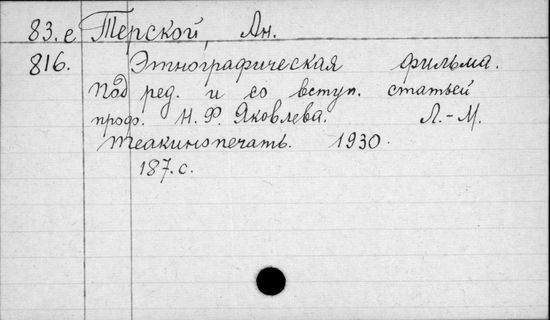 83.е Терской, Ан.
816. Этнографическая фильма.
Под ред. и со вступ. статьей
проф. Н. Ф. Яковлева. Л.-М.
Теакинопечать. 1930.
187. с.